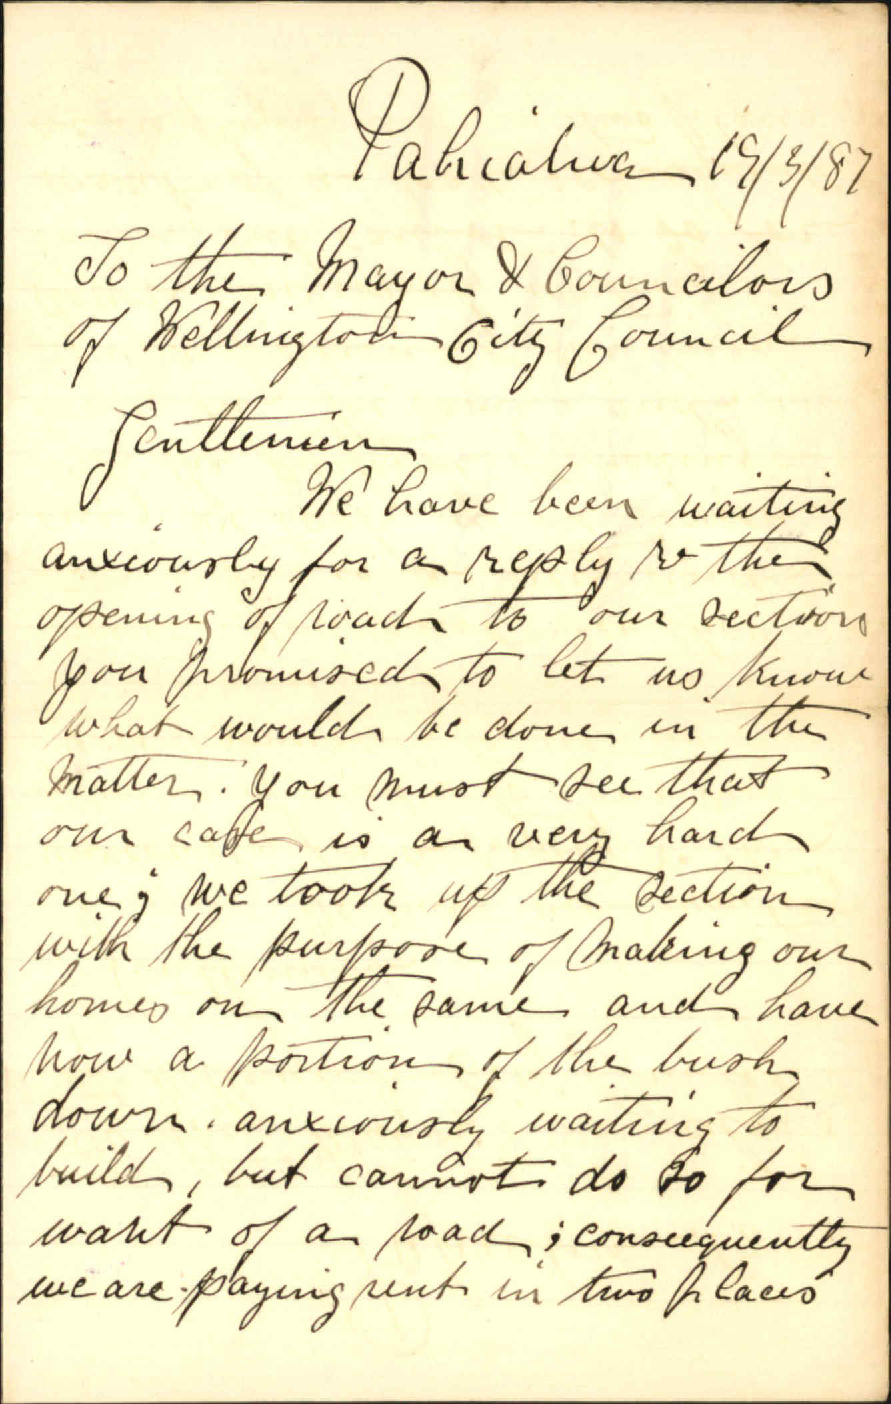 Pahiatua 19/3/87
To the Mayor & Councilors
of Wellington City Council
Gentlemen
We have been waiting
anxiously for a reply re the
opening of road to our section
you promised to let us know
what would be done in the
matter. You must see that
our case is a very hard
one; we took up the section
with the purpose of making our
homes on the same and have
now a portion of the bush
down. anxiously waiting to
build, but cannot do so for
want of a road; conseequently
we are paying rent in two places